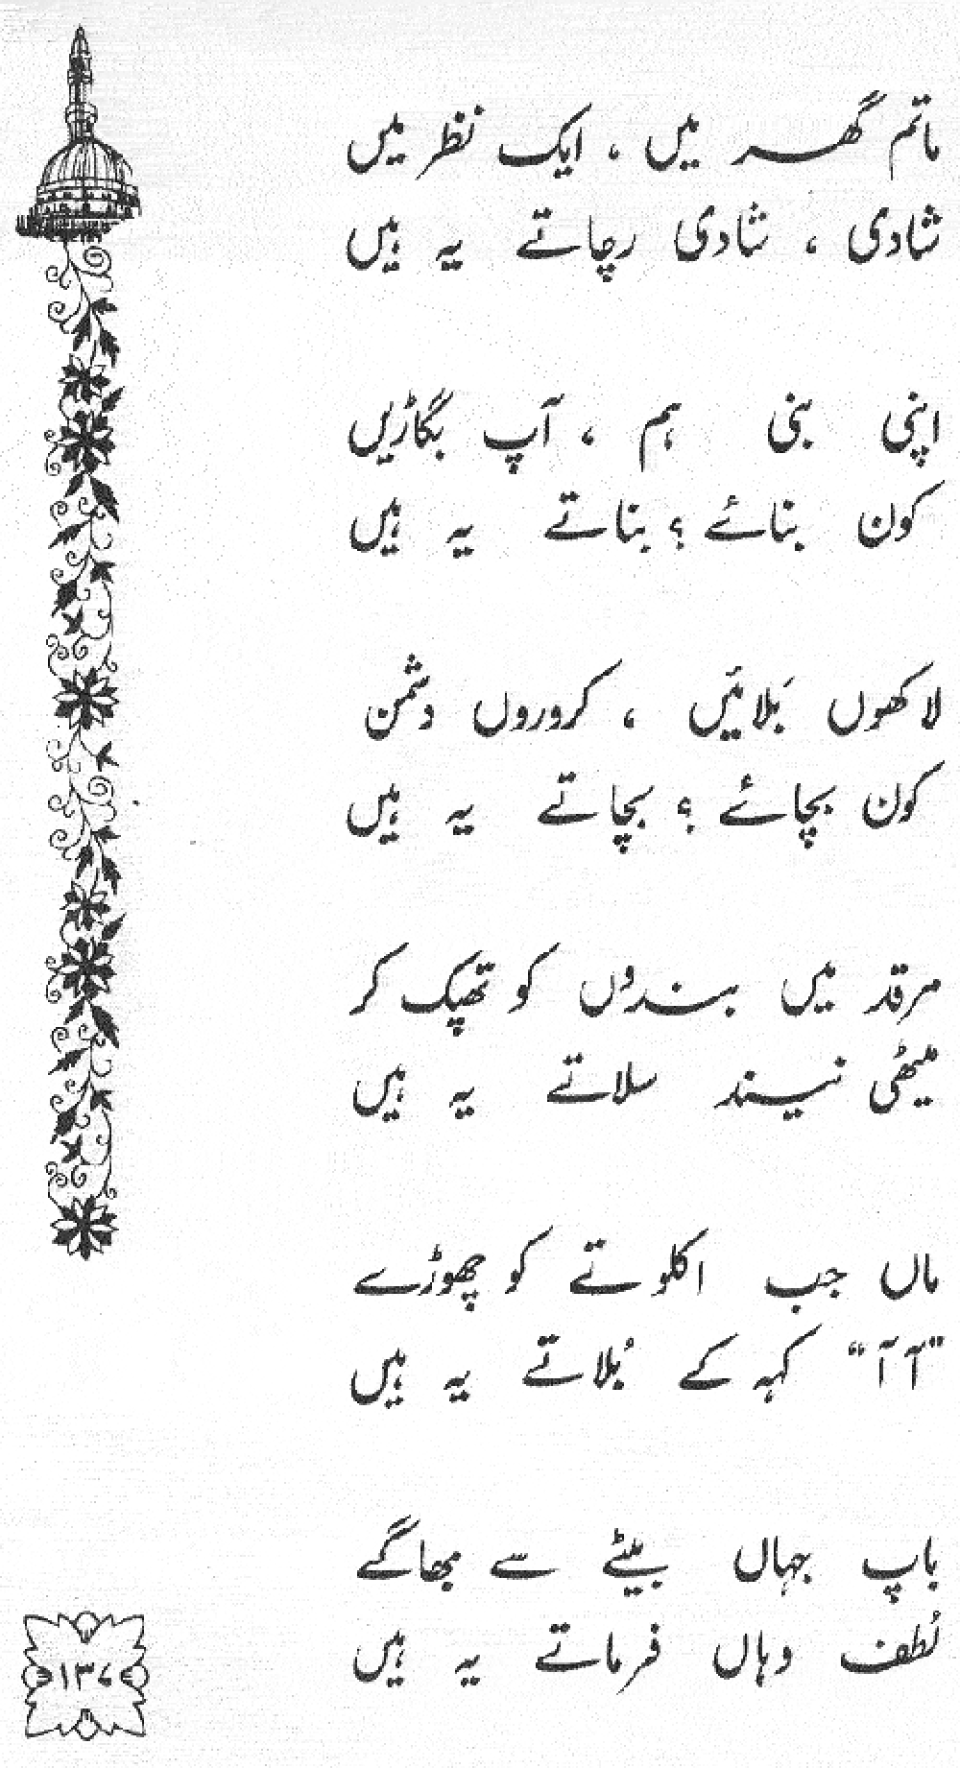 ماتم گھر میں ، ایک نظر میں
شادی ، شادی رچاتے یہ ہیں
اپنی بنی ہم ، آپ بگاڑیں
کون بنائے ؟ بناتے یہ ہیں
لاکھوں بَلائیں ، کروروں دشمن
کون بچائے ؟ بچاتے یہ ہیں
مرقد میں بندوں کو تھپک کر
میٹھی نیند سلاتے یہ ہیں
ماں جب اکلوتے کو چھوڑے
”آ آ“ کہہ کے بُلاتے یہ ہیں
باپ جہاں بیٹے سے بھاگے
لُطف وہاں فرماتے یہ ہیں
۱۳۷